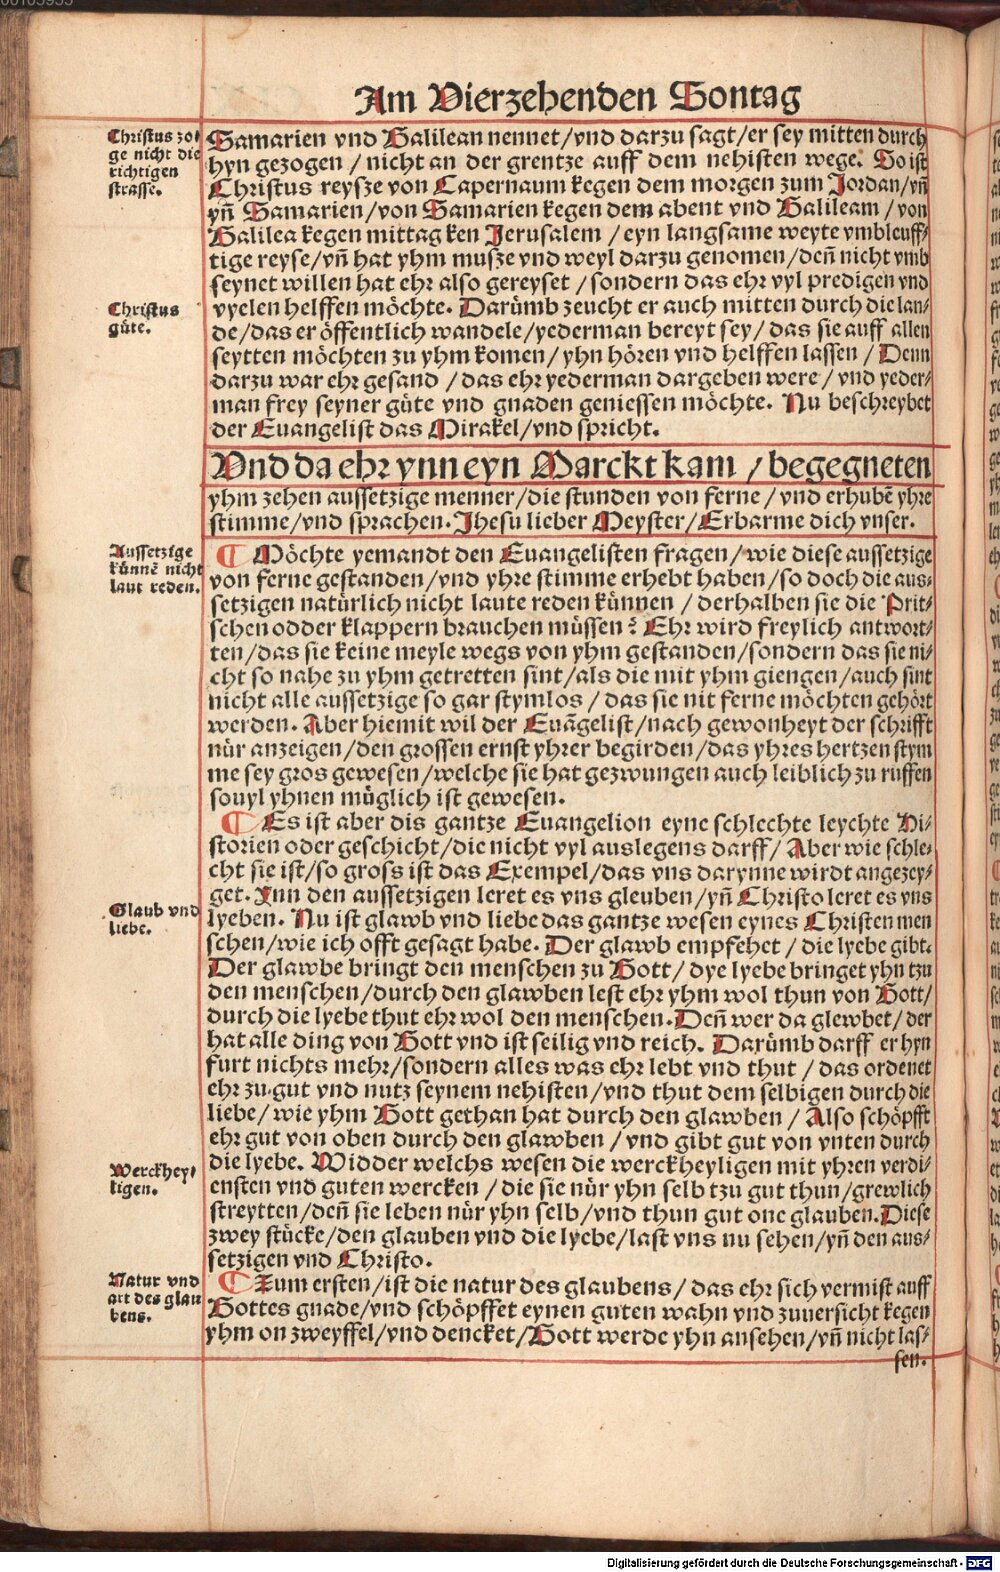 Am Vierzehenden Sontag
Christus zoi
ge nicht die
richtigen
strasse.
Samarien vnd Galilean nennet/vnd darzu sagt/er sey mitten durch
hyn gezogen / nicht an der grentze auff dem nehisten wege. So ist
Christus reysze von Capernaum kegen dem morgen zum Jordan/vñ
yñ Samarien/von Samarien kegen dem abent vnd Galileam / von
Galilea kegen mittag ken Jerusalem / eyn langsame weyte vmbleuff⸗
tige reyse/vñ hat yhm musze vnd weyl darzu genomen/deñ nicht vmb
seynet willen hat ehr also gereyset / sondern das ehr vyl predigen vnd
Christus
güte.
vyelen helffen möchte. Darümb zeucht er auch mitten durch die lan⸗
de/das er öffentlich wandele/yederman bereyt sey/ das sie auff allen
seytten möchten zu yhm komen/ yhn hören vnd helffen lassen / Denn
darzu war ehr gesand / das ehr yederman dargeben were/ vnd yeder⸗
man frey seyner güte vnd gnaden geniessen möchte. Nu beschreybet
der Euangelist das Mirakel/vnd spricht.
Vnd da ehr ynn eyn Marckt kam / begegneten
yhm zehen aussetzige menner/die stunden von ferne/ vnd erhubē yhre
stimme/vnd sprachen. Jhesu lieber Meyster/Erbarme dich vnser.
Aussetzige
künnē nicht
laut reden.
¶ Möchte yemandt den Euangelisten fragen/ wie diese aussetzige
von ferne gestanden/vnd yhre stimme erhebt haben/so doch die aus⸗
setzigen natürlich nicht laute reden künnen / derhalben sie die Prit⸗
schen odder klappern brauchen müssen? Ehr wird freylich antwort⸗
ten/das sie keine meyle wegs von yhm gestanden/sondern das sie ni⸗
cht so nahe zu yhm getretten sint/als die mit yhm giengen/auch sint
nicht alle aussetzige so gar stymlos / das sie nit ferne möchten gehört
werden. Aber hiemit wil der Euāgelist/nach gewonheyt der schrifft
nür anzeigen/den grossen ernst yhrer begirden/das yhres hertzen stym
me sey gros gewesen/welche sie hat gezwungen auch leiblich zu ruffen
souyl yhnen müglich ist gewesen.
¶ Es ist aber dis gantze Euangelion eyne schlechte leychte Hi⸗
storien oder geschicht/die nicht vyl auslegens darff/ Aber wie schle⸗
cht sie ist/so gross ist das Exempel/das vns darynne wirdt angezey⸗
get. Ynn den aussetzigen leret es vns gleuben/yñ Christo leret es vns
Glaub vnd
liebe.
lyeben. Nu ist glawb vnd liebe das gantze wesen eynes Christen men
schen/wie ich offt gesagt habe. Der glawb empfehet / die lyebe gibt.
Der glawbe bringt den menschen zu Gott/ dye lyebe bringet yhn tzu
den menschen/durch den glawben lest ehr yhm wol thun von Gott/
durch die lyebe thut ehr wol den menschen. Deñ wer da glewbet/ der
hat alle ding von Gott vnd ist seilig vnd reich. Darümb darff er hyn
furt nichts mehr/sondern alles was ehr lebt vnd thut / das ordenet
ehr zu gut vnd nutz seynem nehisten/vnd thut dem selbigen durch die
liebe/ wie yhm Gott gethan hat durch den glawben / Also schöpfft
ehr gut von oben durch den glawben / vnd gibt gut von vnten durch
Werckhey⸗
ligen.
die lyebe. Widder welchs wesen die werckheyligen mit yhren verdi⸗
ensten vnd guten wercken / die sie nür yhn selb tzu gut thun/grewlich
streytten/deñ sie leben nür yhn selb/vnd thun gut one glauben. Diese
zwey stücke/den glauben vnd die lyebe/last vns nu sehen/yñ den aus⸗
setzigen vnd Christo.
Natur vnd
art des glau
bens.
¶ Zum ersten/ist die natur des glaubens/ das ehr sich vermist auff
Gottes gnade/vnd schöpffet eynen guten wahn vnd zuuersicht kegen
yhm on zweyffel/vnd dencket/Gott werde yhn ansehen/vñ nicht las⸗
sen.
Digitalisierung gefördert durch die Deutsche Forschungsgemeinschaft - DFG